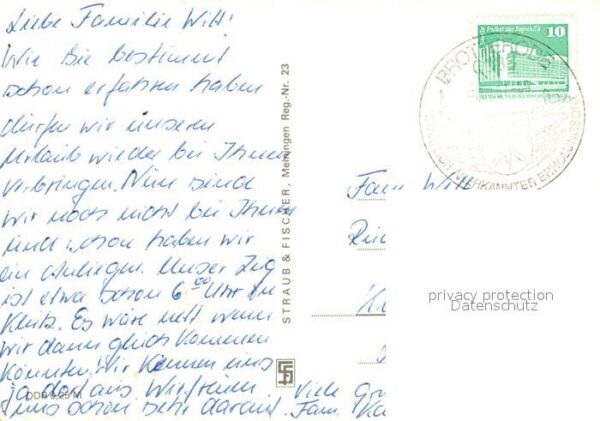 Liebe Familie Witt!
Wie Sie bestimmt
schon erfahren haben
dürfen wir unseren
Urlaub wieder bei Ihnen
verbringen. Nun sind
wir noch nicht bei Ihnen
und schon haben wir
ein Anliegen. Unser Zug
ist etwa schon 6 00 Uhr in
Klütz. Es wäre nett wenn
wir dann gleich kommen
könnten. Wir kennen uns
ja dort aus. Wir freuen
uns schon sehr darauf.
Viele
Fam.
DDR 0,25 M
STRAUB & FISCHER, Meiningen Reg.-Nr. 23
Palast der Republik
10
BROTTERODE
STAATLICH ANERKANNTER ERHOLUNGSORT
Fam Witt
privacy protection
Datenschutz